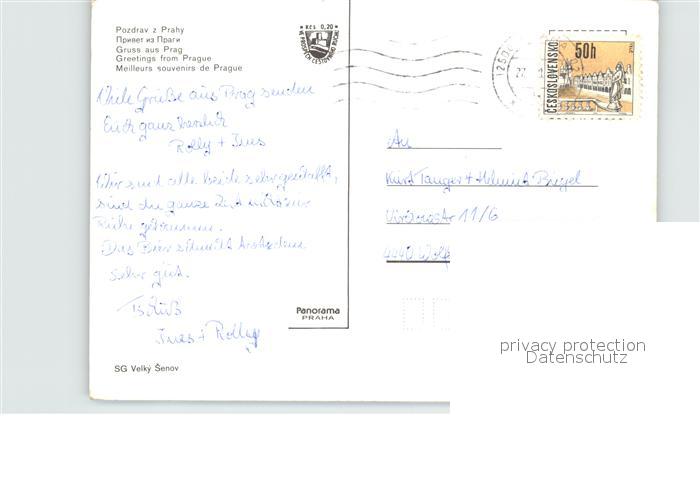 Pozdrav z Prahy
Привет из Праги
Gruss aus Prag
Greetings from Prague
Meilleurs souvenirs de Prague
Kčs 0,20
ČESKOSLOVENSKO
50h
Viele Grüße aus Prag senden
Euch ganz herzlich
Rolly + Ines
Wir sind alle beide sehr geschafft,
sind die ganze Zeit
Das Bier schmeckt trotzdem
sehr gut.
Tschüß
Ines + Rolly
An
Kurt Tanger + Helmut
11/6
4440
Panorama
PRAHA
SG Velký Šenov
privacy protection
Datenschutz